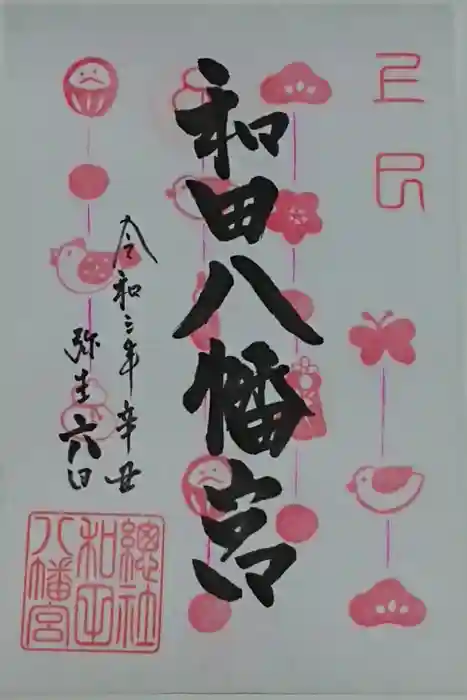 上巳
和田八幡宮
令和三年辛丑
弥生六日
總社
和田
八幡宮